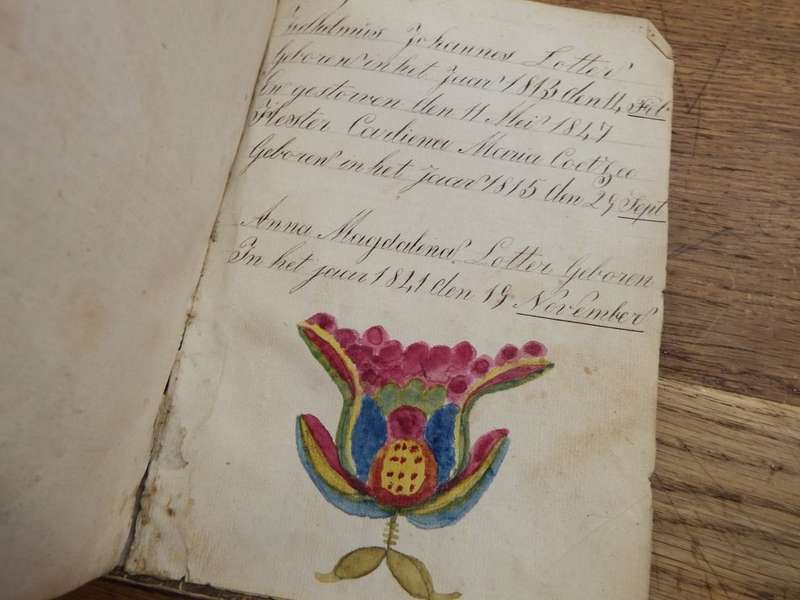 Wilhelmus Johannes Lotter
Geboren in het Jaar 1813 den 14 Feb
En gestorven den 11 Mei 1847
Hester Cariena Maria Coetzee
Geboren in het jaar 1815 den 29 Sept
Anna Magdalena Lotter Geboren
In het jaar 1841 den 19 November